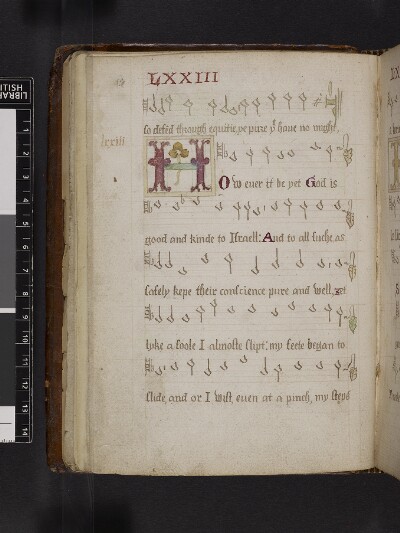 LXXIII
so defēd through equitie, ye pure yͭ have no might
lxxiii
How ever it be yet God is
good and kinde to Israell: And to all suche as
safely kepe their conscience pure and well, yet
lyke a foole I almoste slipt, my feete began to
slide, and or I wist, even at a pinch, my steps